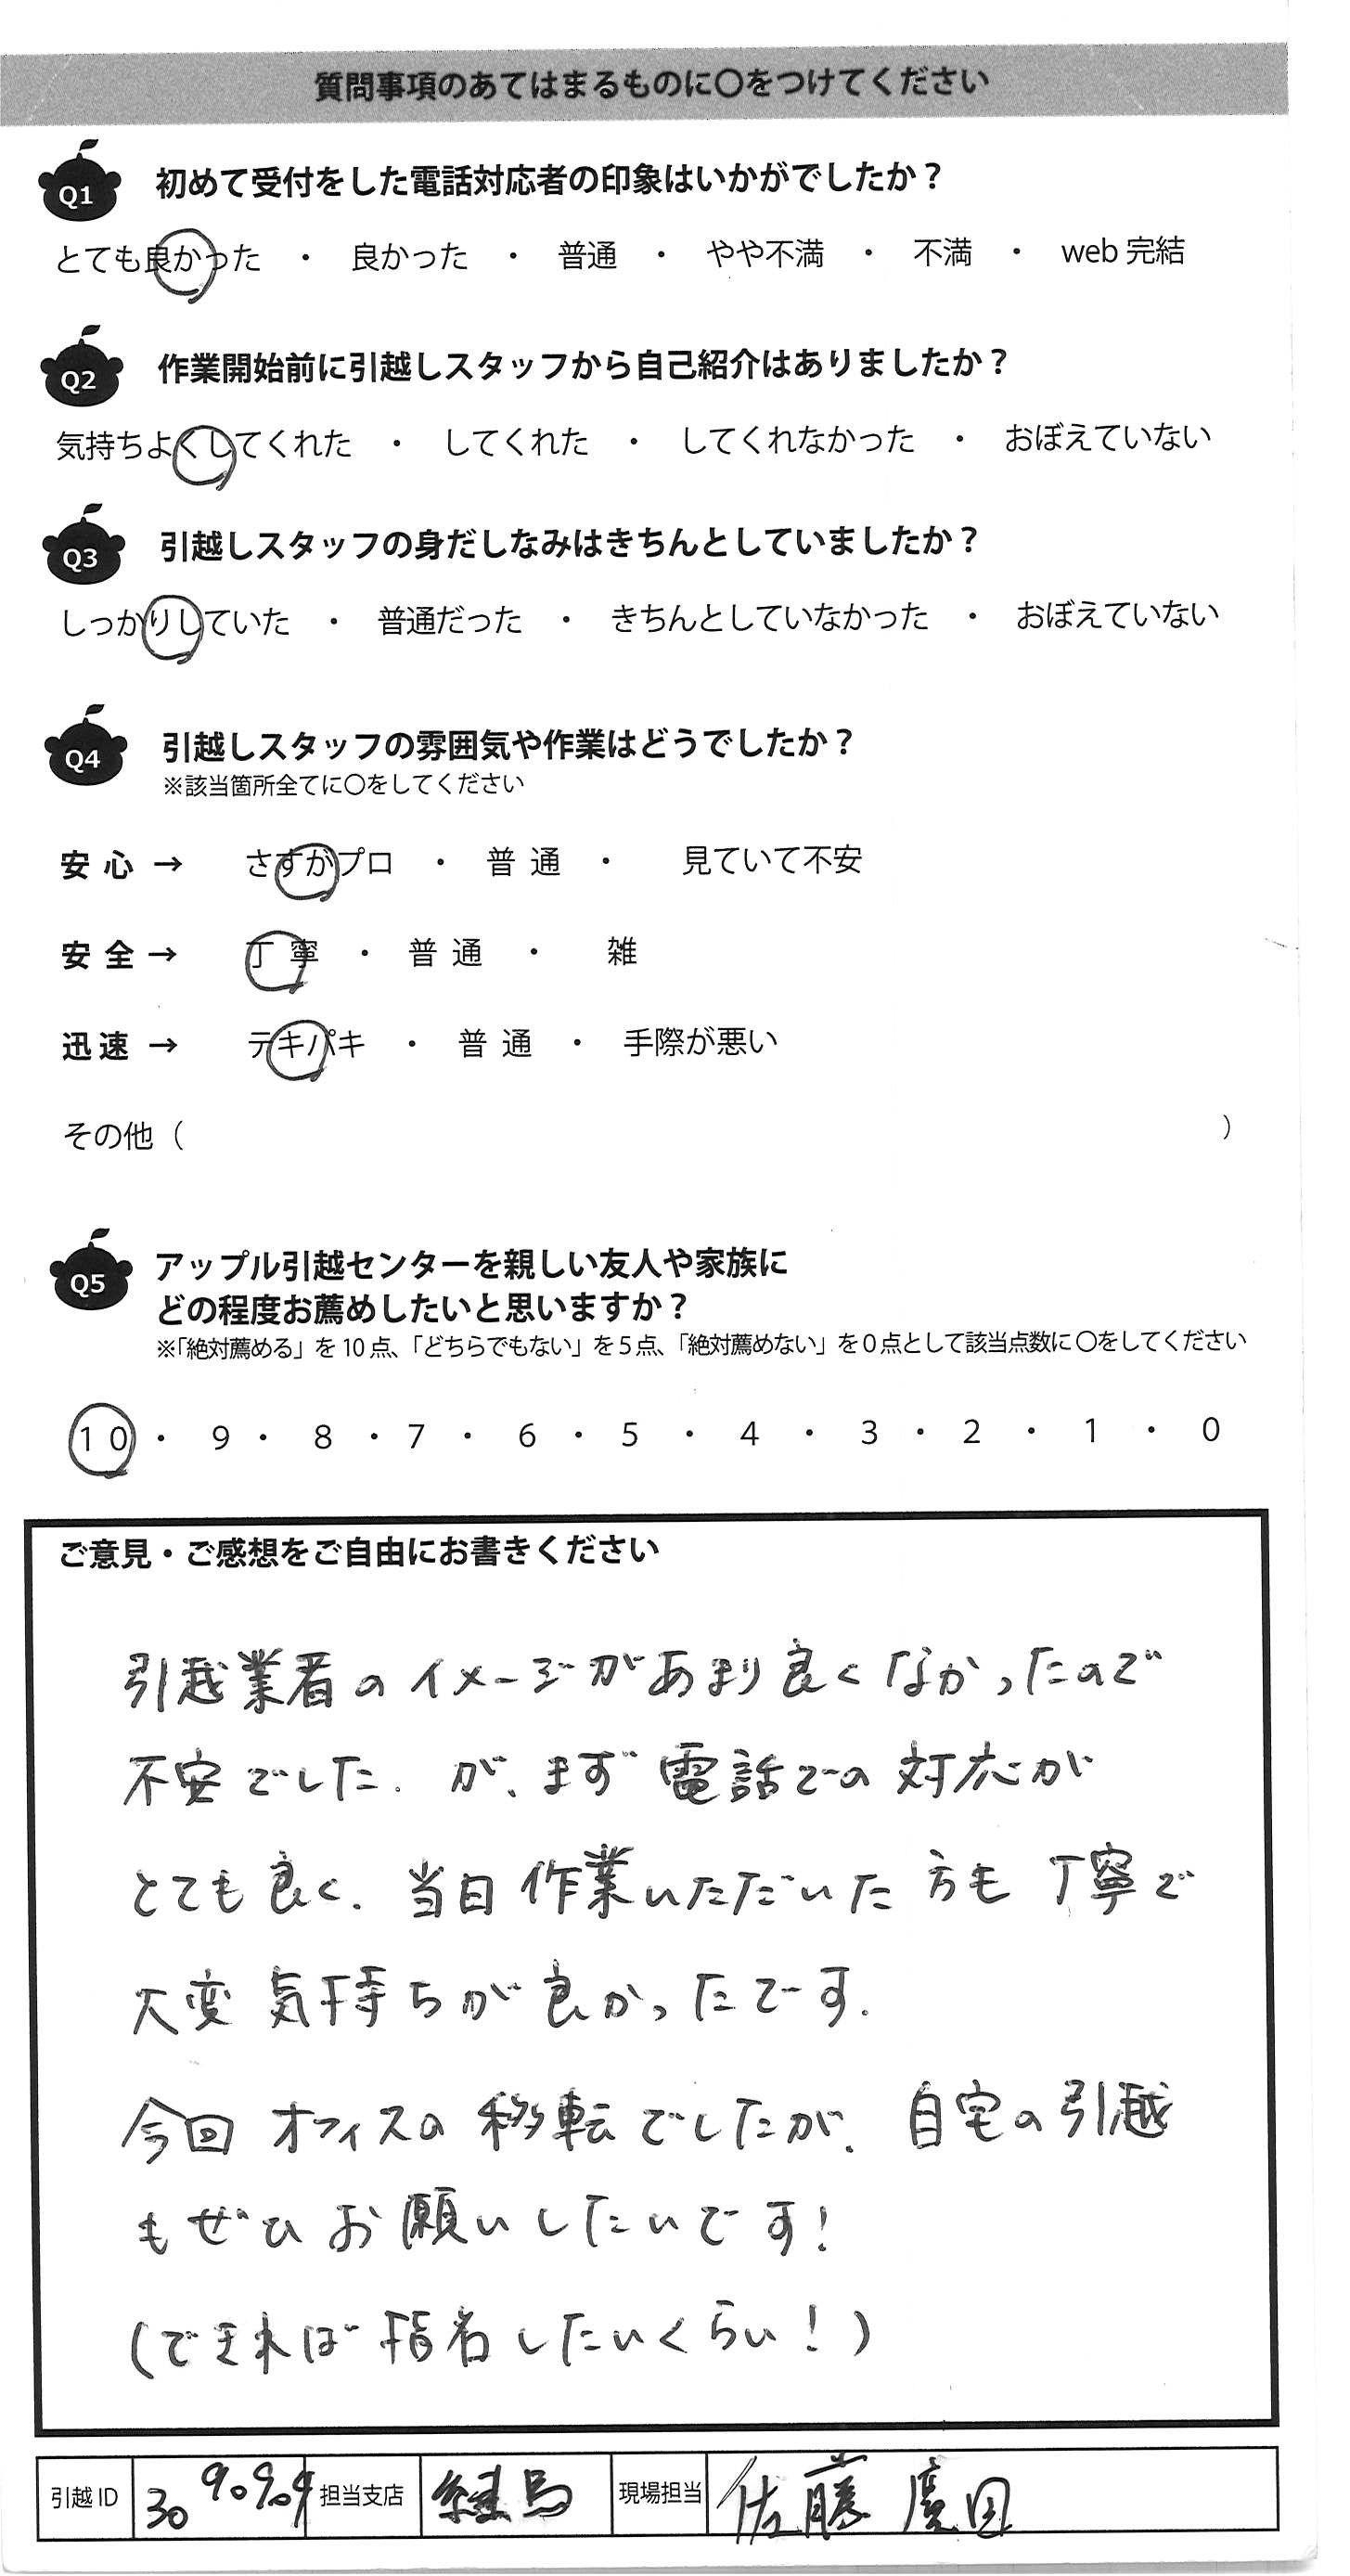 質問事項のあてはまるものに〇をつけてください
Q1 初めて受付をした電話対応者の印象はいかがでしたか？
とても良かった ・ 良かった ・ 普通 ・ やや不満 ・ 不満 ・ web 完結
Q2 作業開始前に引越しスタッフから自己紹介はありましたか？
気持ちよくしてくれた ・ してくれた ・ してくれなかった ・ おぼえていない
Q3 引越しスタッフの身だしなみはきちんとしていましたか？
しっかりしていた ・ 普通だった ・ きちんとしていなかった ・ おぼえていない
Q4 引越しスタッフの雰囲気や作業はどうでしたか？
※該当箇所全てに〇をしてください
安心 → さすがプロ ・ 普通 ・ 見ていて不安
安全 → 丁寧 ・ 普通 ・ 雑
迅速 → テキパキ ・ 普通 ・ 手際が悪い
その他（ ）
Q5 アップル引越センターを親しい友人や家族に
どの程度お薦めしたいと思いますか？
※「絶対薦める」を10点、「どちらでもない」を5点、「絶対薦めない」を0点として該当点数に〇をしてください
10 ・ 9 ・ 8 ・ 7 ・ 6 ・ 5 ・ 4 ・ 3 ・ 2 ・ 1 ・ 0
ご意見・ご感想をご自由にお書きください
引越業者のイメージがあまり良くなかったので
不安でした. が、まず電話での対応が
とても良く、当日作業いただいた方も丁寧で
大変気持ちが良かったです.
今回オフィスの移転でしたが、自宅の引越
もぜひお願いしたいです！
(できれば指名したいくらい！)
引越ID 30 担当支店 練馬 現場担当 佐藤 廣田